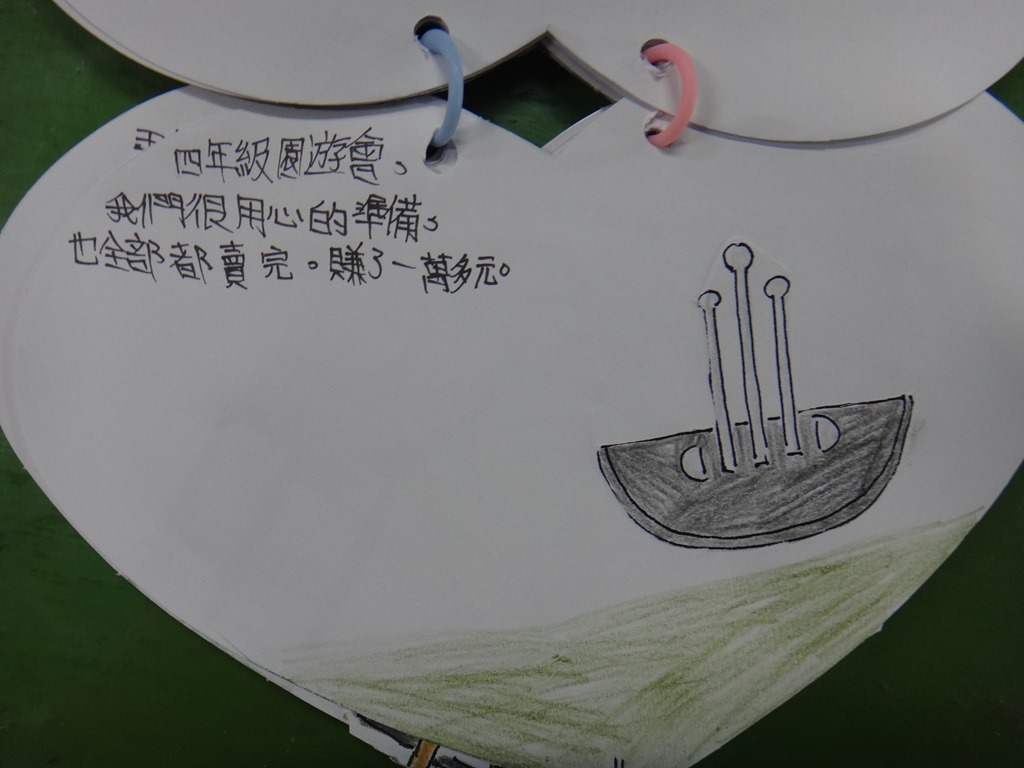 四年級園遊會。
我們很用心的準備。
也全部都賣完。賺了一萬多元。